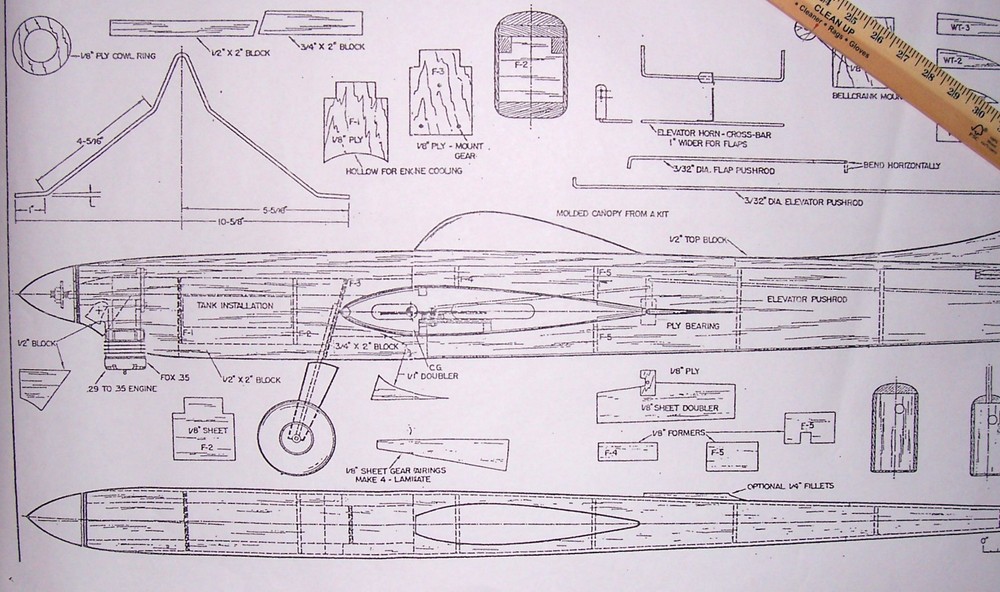 1/8" PLY COWL RING
1/2" X 2" BLOCK
3/4" X 2" BLOCK
F-2
F-3
F-1
1/8" PLY
1/8" PLY - MOUNT
GEAR
HOLLOW FOR ENGINE COOLING
4-5/16"
1"
5-5/16"
10-5/8"
ELEVATOR HORN-CROSS-BAR
1" WIDER FOR FLAPS
CLEAN UP
• Cleaner • Rags • Gloves
25
26
27
28
29
30
FSC
WT-3
WT-2
BELLCRANK MOUN
3/32" DIA. FLAP PUSHROD
BEND HORIZONTALLY
3/32" DIA. ELEVATOR PUSHROD
MOLDED CANOPY FROM A KIT
1/2" TOP BLOCK
TANK INSTALLATION
F-1
F-2
F-3
F-4
F-5
F-5
ELEVATOR PUSHROD
PLY BEARING
3/4" X 2" BLOCK
C.G.
DOUBLER
1/2" BLOCK
.29 TO .35 ENGINE
FOX .35
1/2" X 2" BLOCK
1/8" SHEET
F-2
1/8" SHEET GEAR FAIRINGS
MAKE 4 - LAMINATE
1/8" PLY
1/8" SHEET DOUBLER
1/8" FORMERS
F-4
F-5
F-5
OPTIONAL 1/4" FILLETS
0"